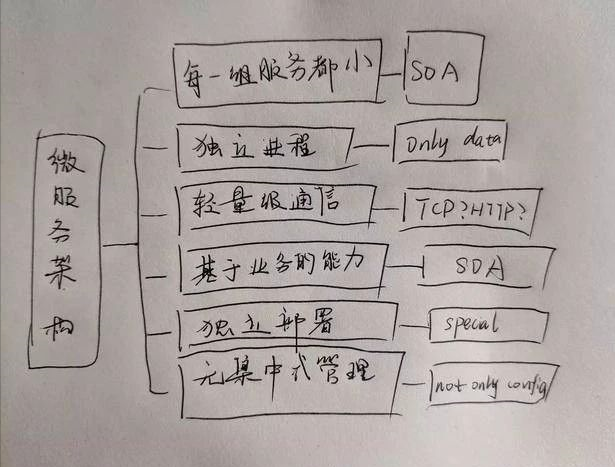 微服务架构
每一组服务都小
SOA
独立进程
Only data
轻量级通信
TCP?HTTP?
基于业务的能力
SOA
独立部署
special
无集中式管理
not only config